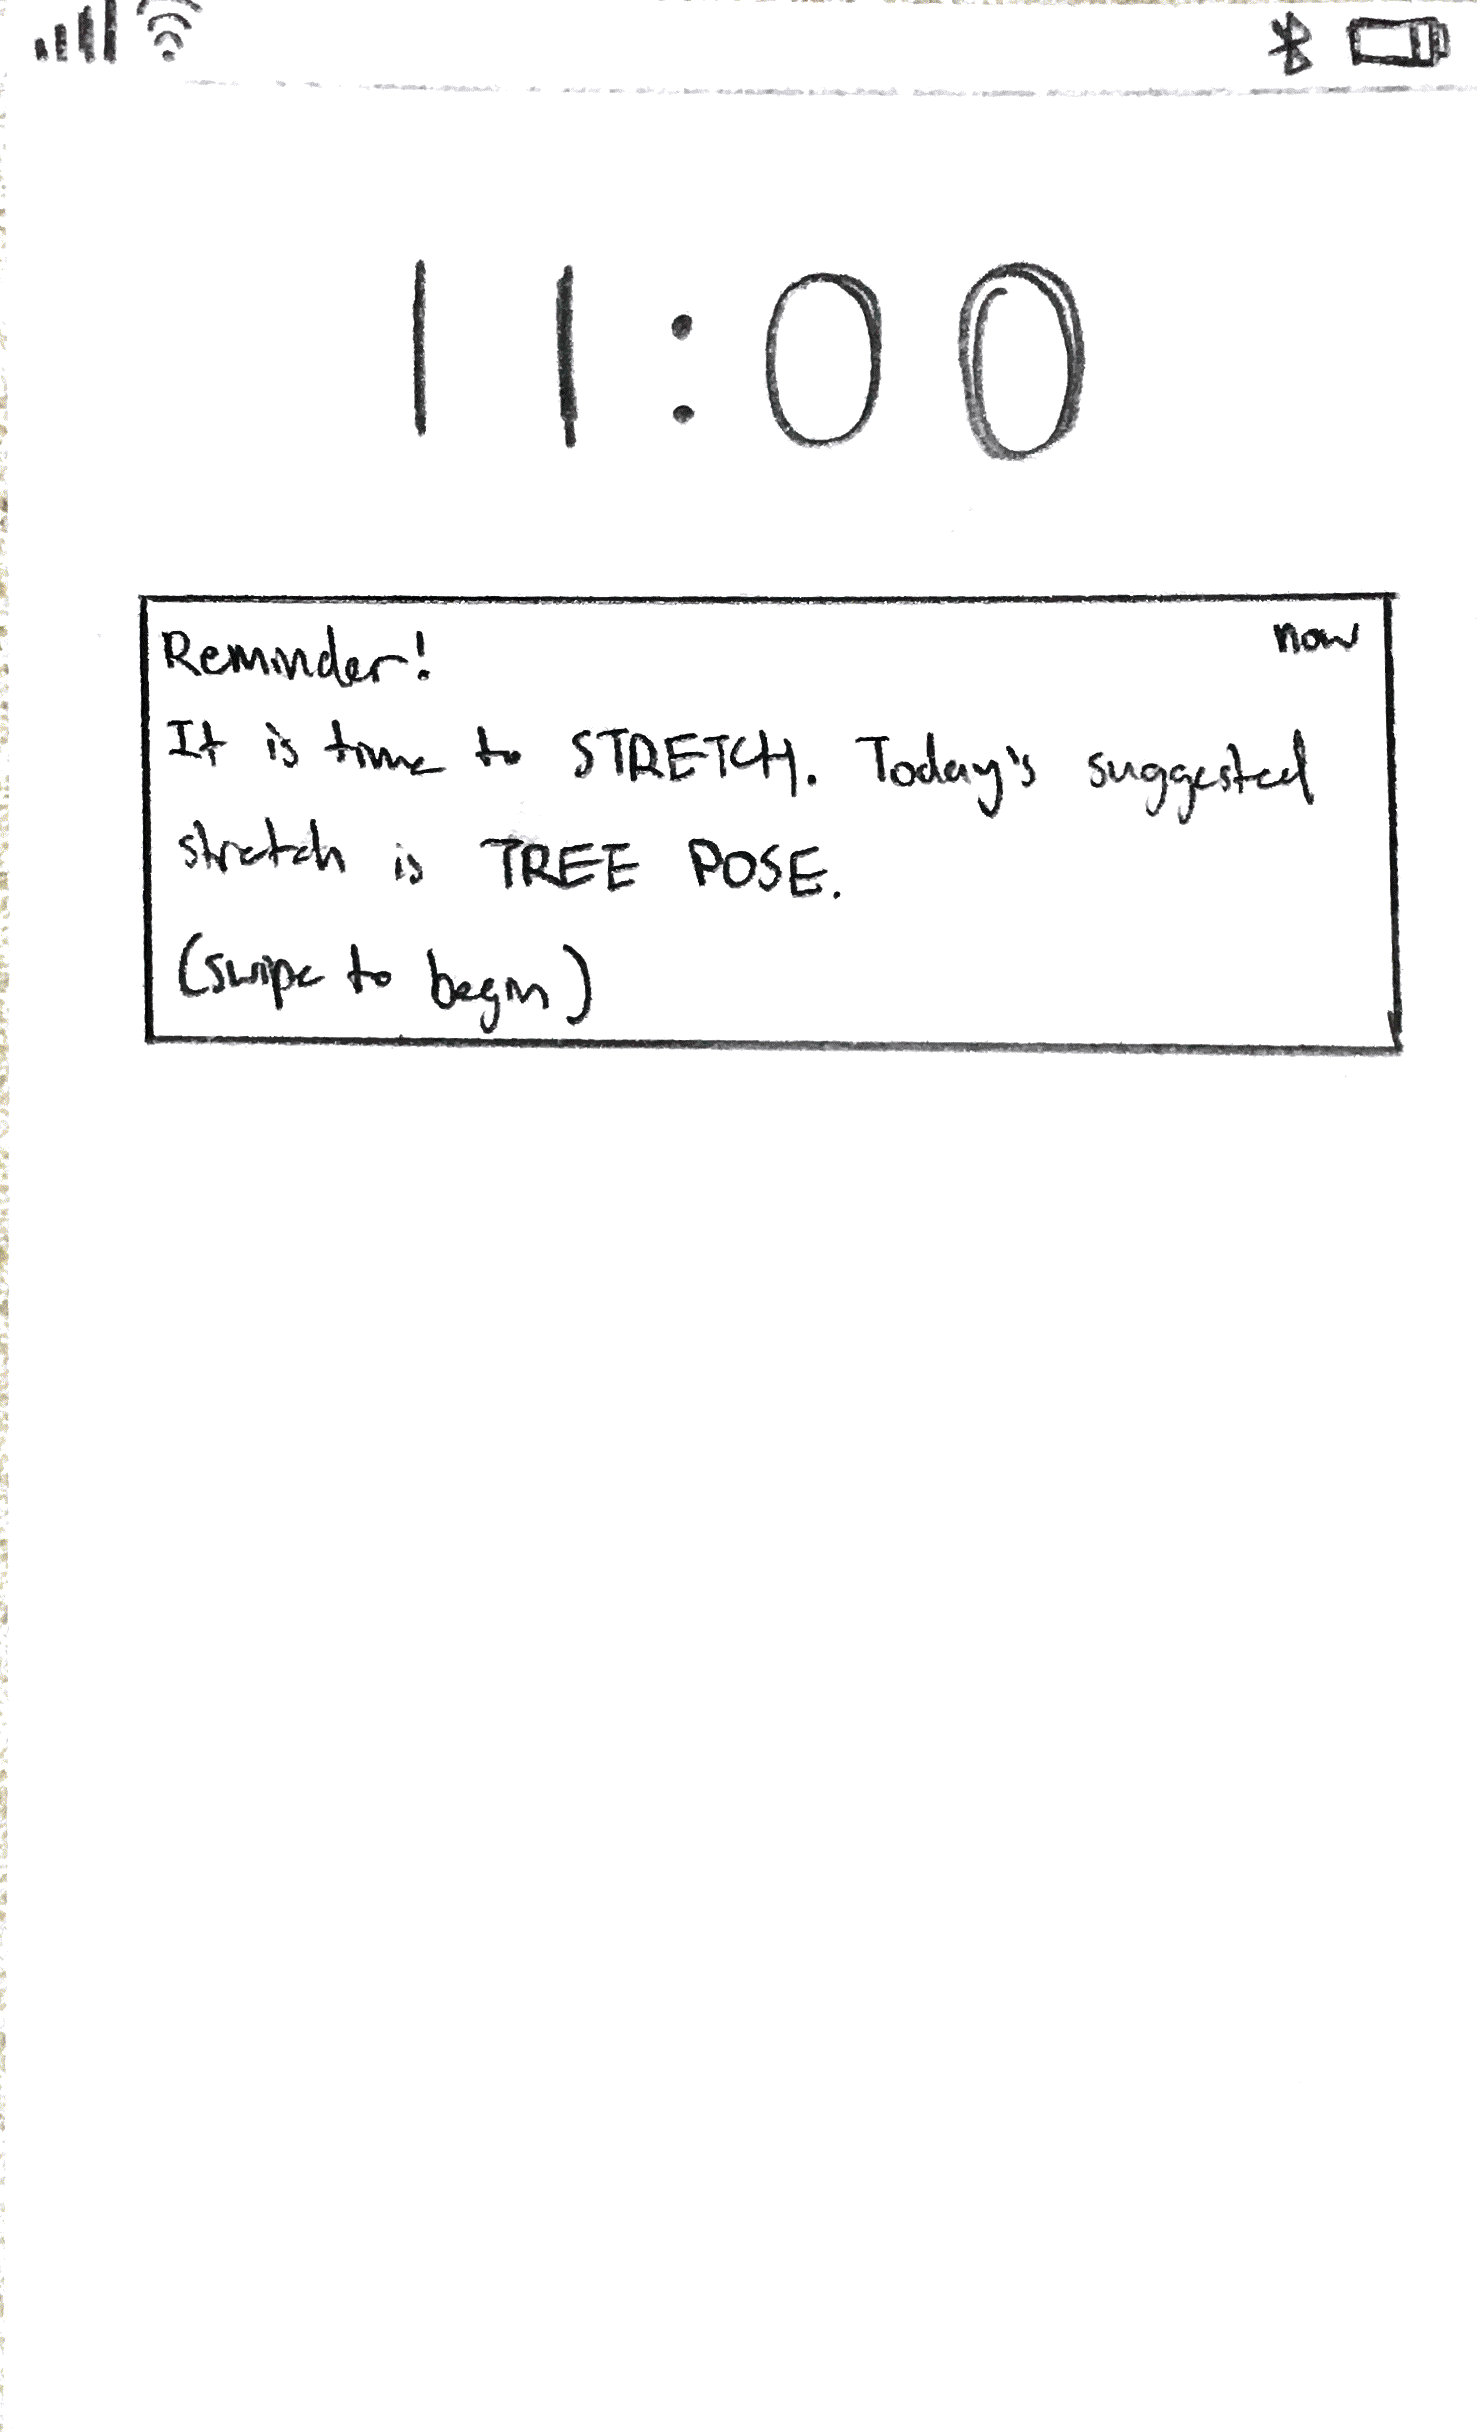 11:00
Reminder! now
It is time to STRETCH. Today's suggested
stretch is TREE POSE.
(swipe to begin)